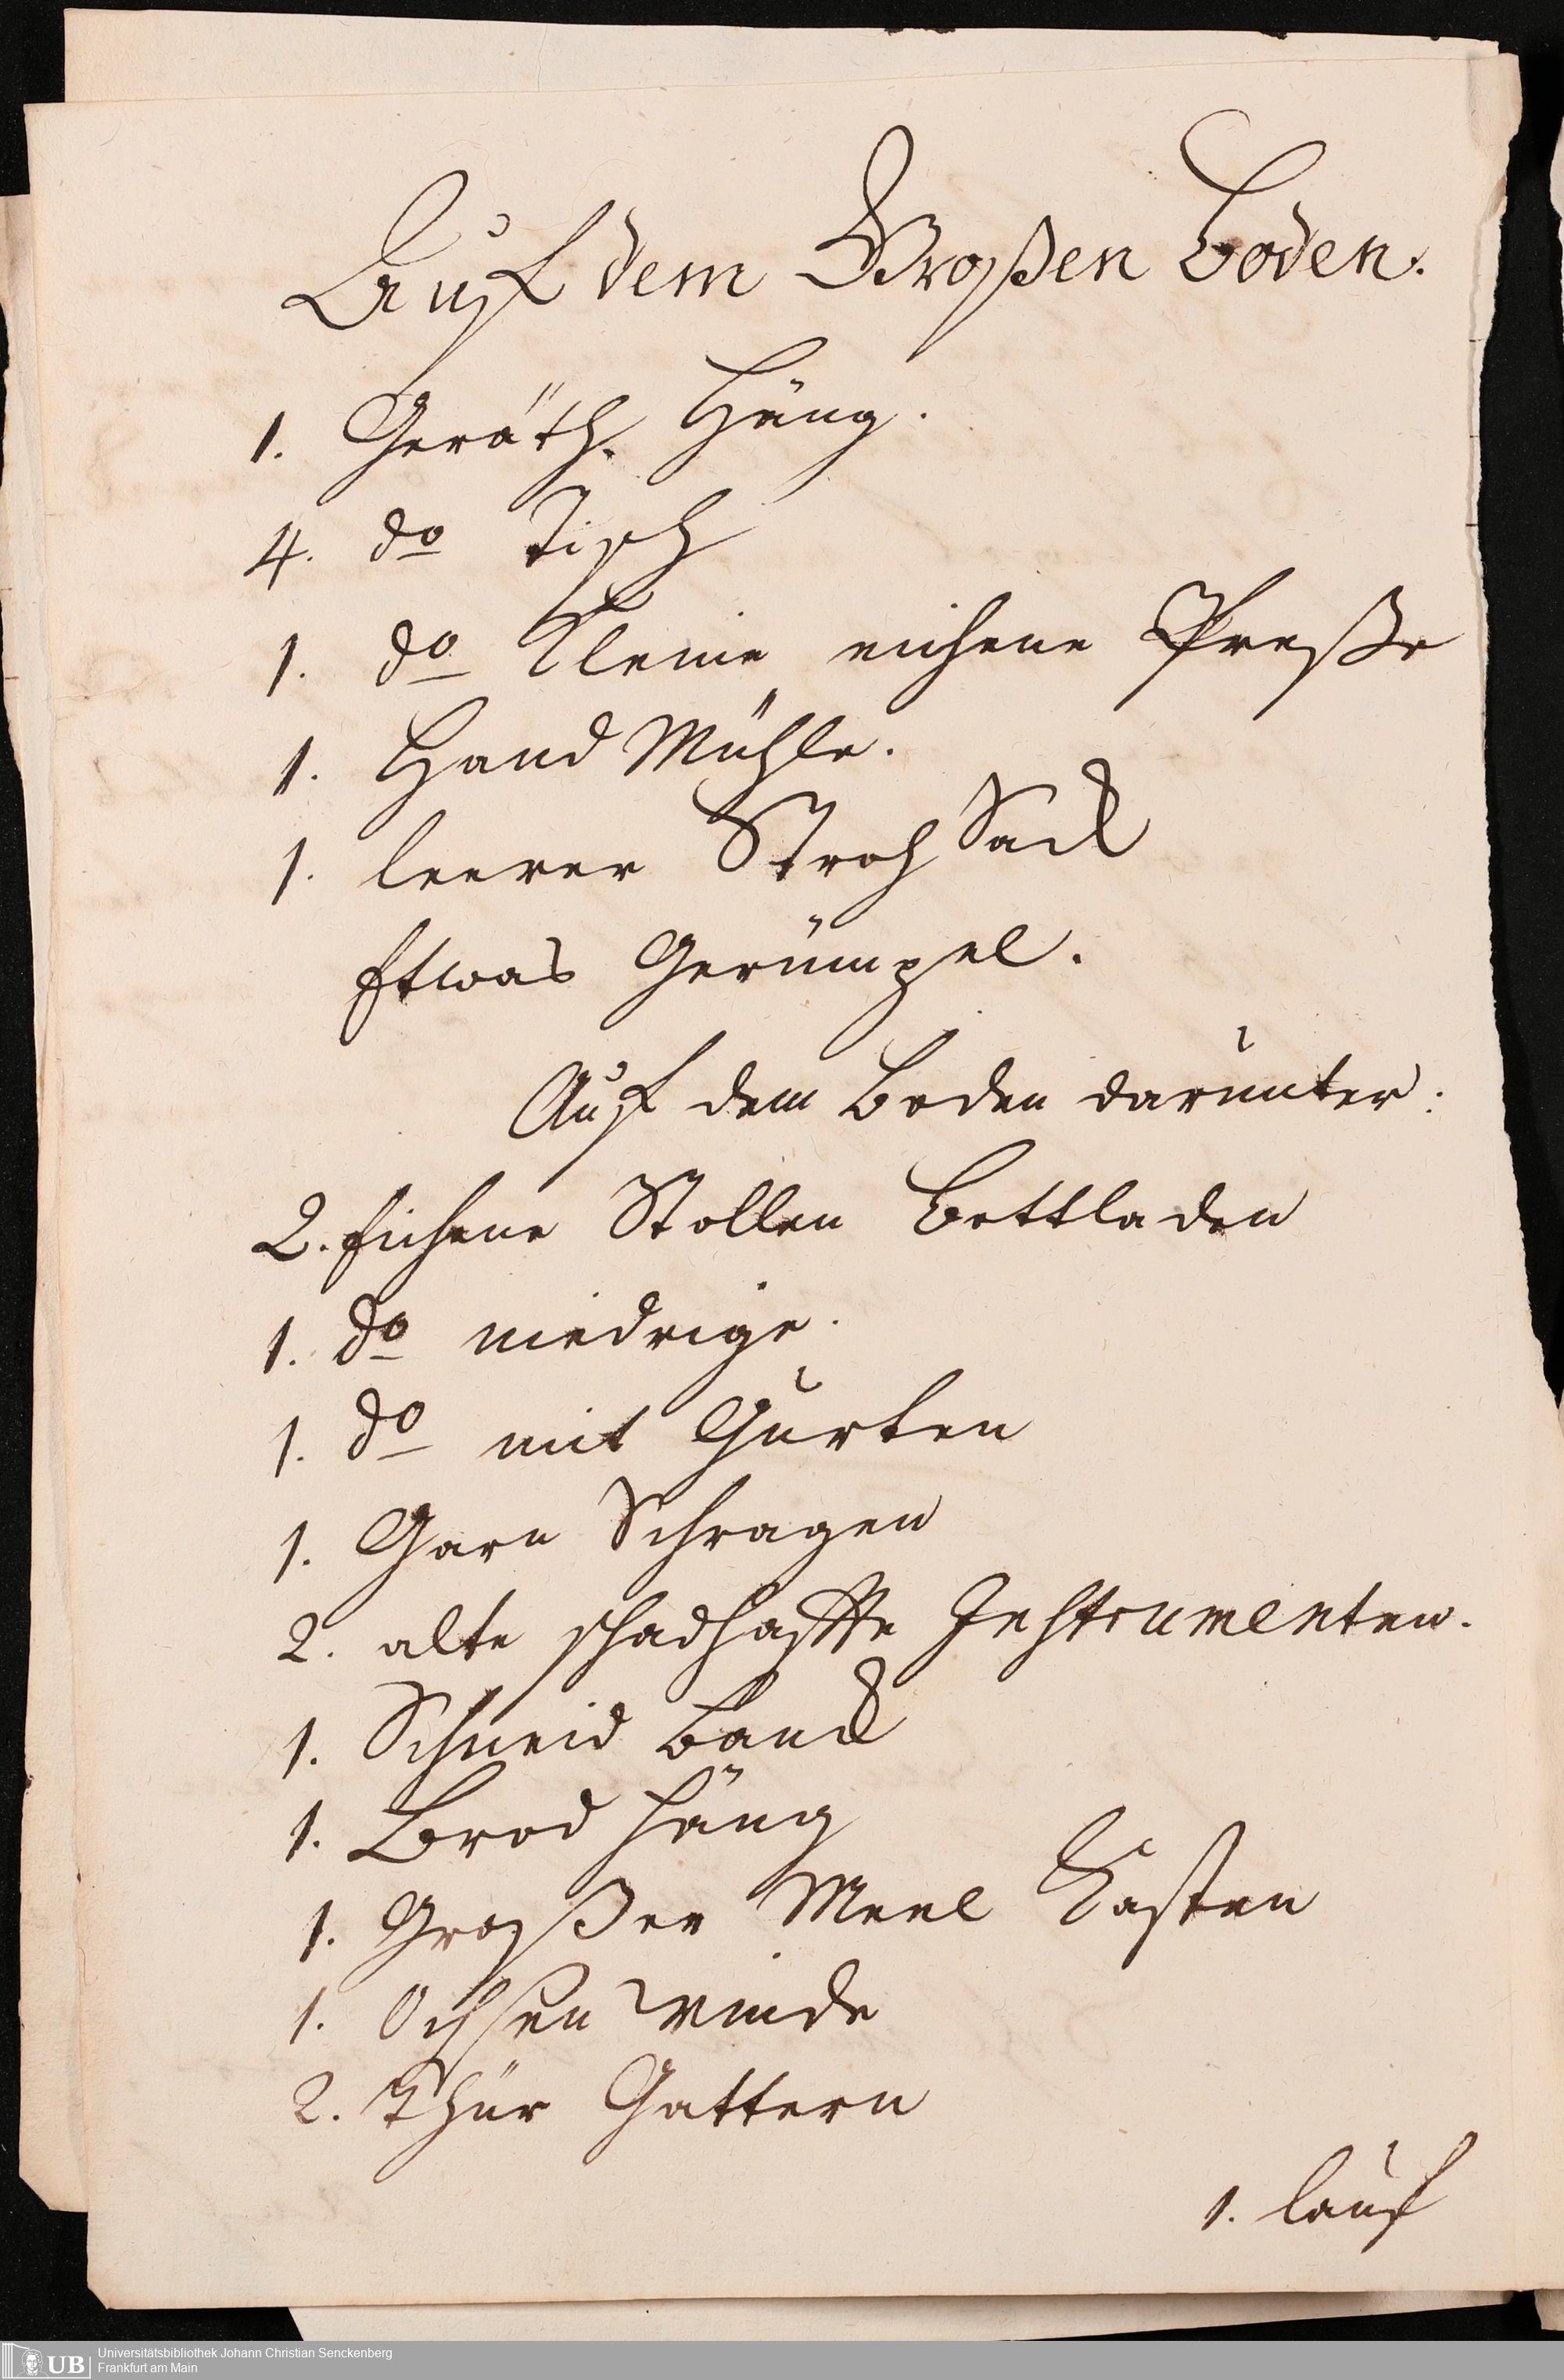 Auf dem Großen Boden.
1. Geräth. Häng.
4. do Tisch
1. do Kleine eichene Preße
1. Hand Mühle.
1. leerer Stroh Sack
Etwas Gerümpel.
Auf dem Boden darunter:
2. Eichene Stollen Bettladen
1. do niedrige.
1. do mit Gurten
1. Garn Schragen
2. alte schadhaffte Instrumenten.
1. Schneid Banck
1. Brod Häng
1. Großer Meel Kasten
1. Ochsen winde
2. Thür Gattern
1. Lauf
UB Universitätsbibliothek Johann Christian Senckenberg
Frankfurt am Main